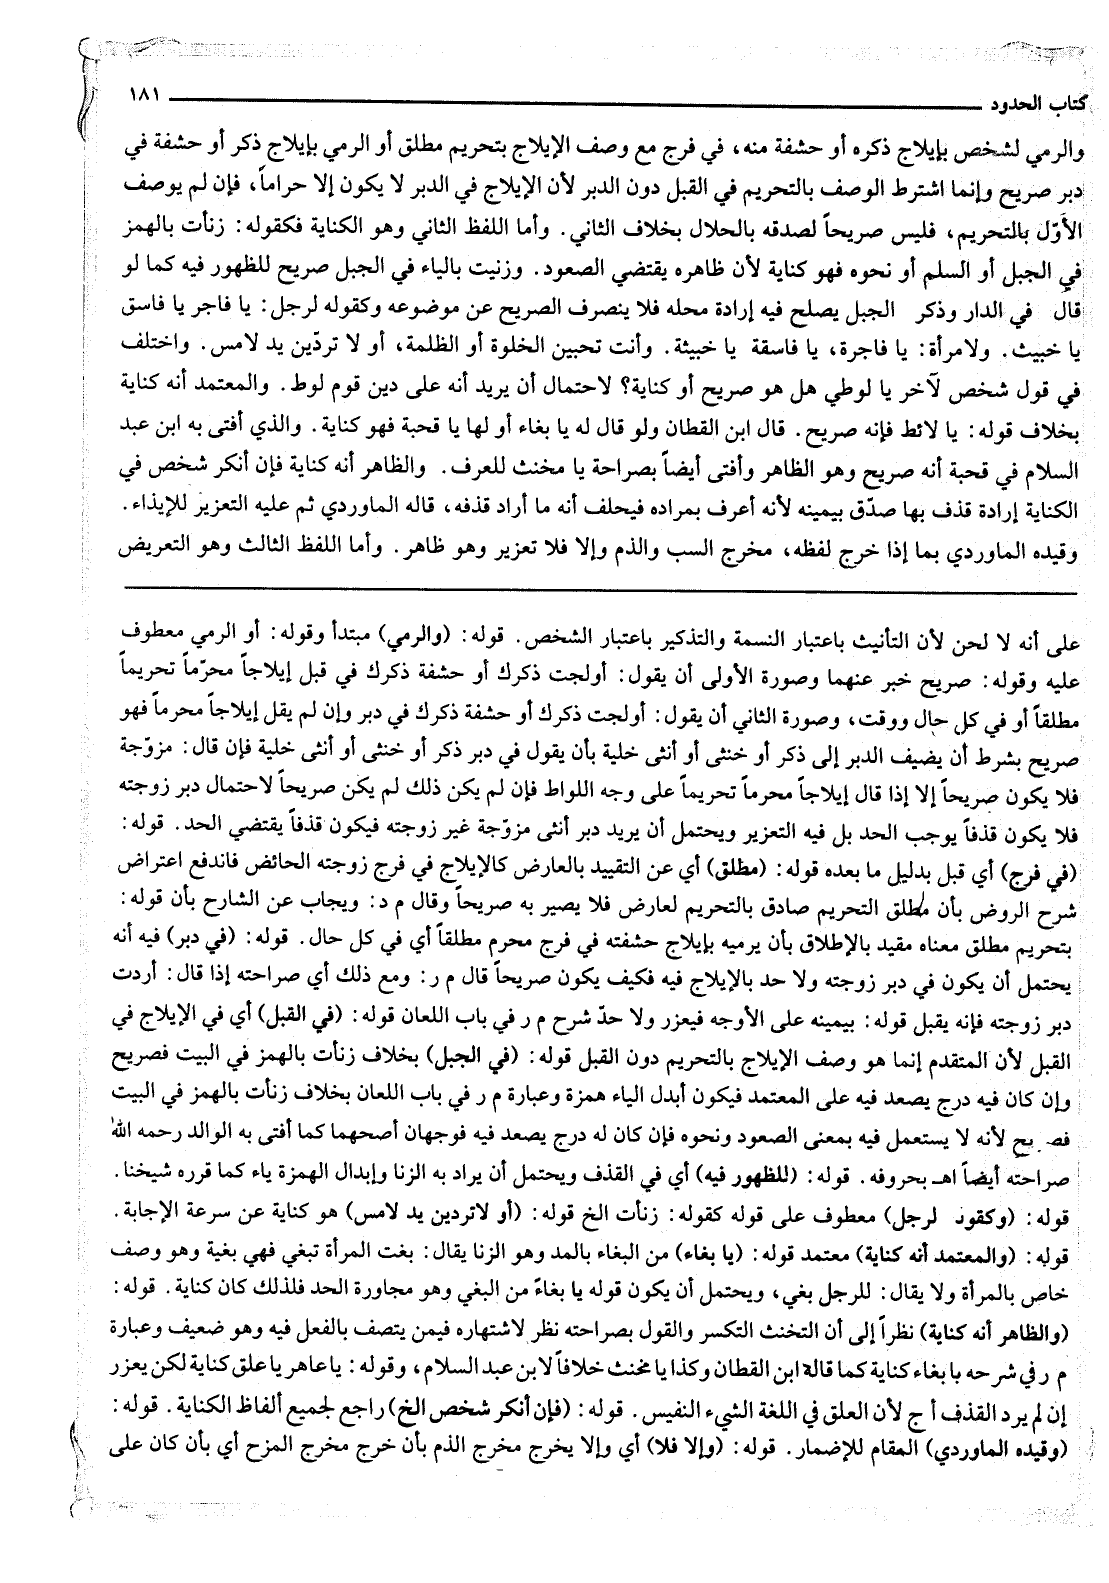 كتاب الحدود ١٨١
والرمي لشخص بإيلاج ذكره أو حشفة منه، في فرج مع وصف الإيلاج بتحريم مطلق أو الرمي بإيلاج ذكر أو حشفة في
دبر صريح وإنما اشترط الوصف بالتحريم في القبل دون الدبر لأن الإيلاج في الدبر لا يكون إلا حراماً، فإن لم يوصف
الأوّل بالتحريم، فليس صريحاً لصدقه بالحلال بخلاف الثاني. وأما اللفظ الثاني وهو الكناية فكقوله: زنأت بالهمز
في الجبل أو السلم أو نحوه فهو كناية لأن ظاهره يقتضي الصعود. وزنيت بالياء في الجبل صريح للظهور فيه كما لو
قال في الدار وذكر الجبل يصلح فيه إرادة محله فلا ينصرف الصريح عن موضوعه وكقوله لرجل: يا فاجر يا فاسق
يا خبيث. ولامرأة: يا فاجرة، يا فاسقة يا خبيثة. وأنت تحبين الخلوة أو الظلمة، أو لا تردّين يد لامس. واختلف
في قول شخص لآخر يا لوطي هل هو صريح أو كناية؟ لاحتمال أن يريد أنه على دين قوم لوط. والمعتمد أنه كناية
بخلاف قوله: يا لائط فإنه صريح. قال ابن القطان ولو قال له يا بغاء أو لها يا قحبة فهو كناية. والذي أفتى به ابن عبد
السلام في قحبة أنه صريح وهو الظاهر وأفتى أيضاً بصراحة يا مخنث للعرف. والظاهر أنه كناية فإن أنكر شخص في
الكناية إرادة قذف بها صدّق بيمينه لأنه أعرف بمراده فيحلف أنه ما أراد قذفه، قاله الماوردي ثم عليه التعزير للإيذاء.
وقيده الماوردي بما إذا خرج لفظه، مخرج السب والذم وإلا فلا تعزير وهو ظاهر. وأما اللفظ الثالث وهو التعريض
على أنه لا لحن لأن التأنيث باعتبار النسمة والتذكير باعتبار الشخص. قوله: (والرمي) مبتدأ وقوله: أو الرمي معطوف
عليه وقوله: صريح خبر عنهما وصورة الأولى أن يقول: أولجت ذكرك أو حشفة ذكرك في قبل إيلاجاً محرّماً تحريماً
مطلقاً أو في كل حال ووقت، وصورة الثاني أن يقول: أولجت ذكرك أو حشفة ذكرك في دبر وإن لم يقل إيلاجاً محرماً فهو
صريح بشرط أن يضيف الدبر إلى ذكر أو خنثى أو أنثى خلية بأن يقول في دبر ذكر أو خنثى أو أنثى خلية فإن قال: مزوّجة
فلا يكون صريحاً إلا إذا قال إيلاجاً محرماً تحريماً على وجه اللواط فإن لم يكن ذلك لم يكن صريحاً لاحتمال دبر زوجته
فلا يكون قذفاً يوجب الحد بل فيه التعزير ويحتمل أن يريد دبر أنثى مزوّجة غير زوجته فيكون قذفاً يقتضي الحد. قوله:
(في فرج) أي قبل بدليل ما بعده قوله: (مطلق) أي عن التقييد بالعارض كالإيلاج في فرج زوجته الحائض فاندفع اعتراض
شرح الروض بأن مطلق التحريم صادق بالتحريم لعارض فلا يصير به صريحاً وقال م د: ويجاب عن الشارح بأن قوله:
بتحريم مطلق معناه مقيد بالإطلاق بأن يرميه بإيلاج حشفته في فرج محرم مطلقاً أي في كل حال. قوله: (في دبر) فيه أنه
يحتمل أن يكون في دبر زوجته ولا حد بالإيلاج فيه فكيف يكون صريحاً قال م ر: ومع ذلك أي صراحته إذا قال: أردت
دبر زوجته فإنه يقبل قوله: بيمينه على الأوجه فيعزر ولا حدّ شرح م ر في باب اللعان قوله: (في القبل) أي في الإيلاج في
القبل لأن المتقدم إنما هو وصف الإيلاج بالتحريم دون القبل قوله: (في الجبل) بخلاف زنأت بالهمز في البيت فصريح
وإن كان فيه درج يصعد فيه على المعتمد فيكون أبدل الياء همزة وعبارة م ر في باب اللعان بخلاف زنأت بالهمز في البيت
فصريح لأنه لا يستعمل فيه بمعنى الصعود ونحوه فإن كان له درج يصعد فيه فوجهان أصحهما كما أفتى به الوالد رحمه الله
صراحته أيضاً اهـ بحروفه. قوله: (للظهور فيه) أي في القذف ويحتمل أن يراد به الزنا وإبدال الهمزة ياء كما قرره شيخنا.
قوله: (وكقوله لرجل) معطوف على قوله كقوله: زنأت الخ قوله: (أو لاتردين يد لامس) هو كناية عن سرعة الإجابة.
قوله: (والمعتمد أنه كناية) معتمد قوله: (يا بغاء) من البغاء بالمد وهو الزنا يقال: بغت المرأة تبغي فهي بغية وهو وصف
خاص بالمرأة ولا يقال: للرجل بغي، ويحتمل أن يكون قوله يا بغاءً من البغي وهو مجاورة الحد فلذلك كان كناية. قوله:
(والظاهر أنه كناية) نظراً إلى أن التخنث التكسر والقول بصراحته نظر لاشتهاره فيمن يتصف بالفعل فيه وهو ضعيف وعبارة
م ر في شرحه يا بغاء كناية كما قاله ابن القطان وكذا يا مخنث خلافاً لابن عبد السلام، وقوله: يا عاهر يا علق كناية لكن يعزر
إن لم يرد القذف أ ج لأن العلق في اللغة الشيء النفيس. قوله: (فإن أنكر شخص الخ) راجع لجميع ألفاظ الكناية. قوله:
(وقيده الماوردي) المقام للإضمار. قوله: (وإلا فلا) أي وإلا يخرج مخرج الذم بأن خرج مخرج المزح أي بأن كان على